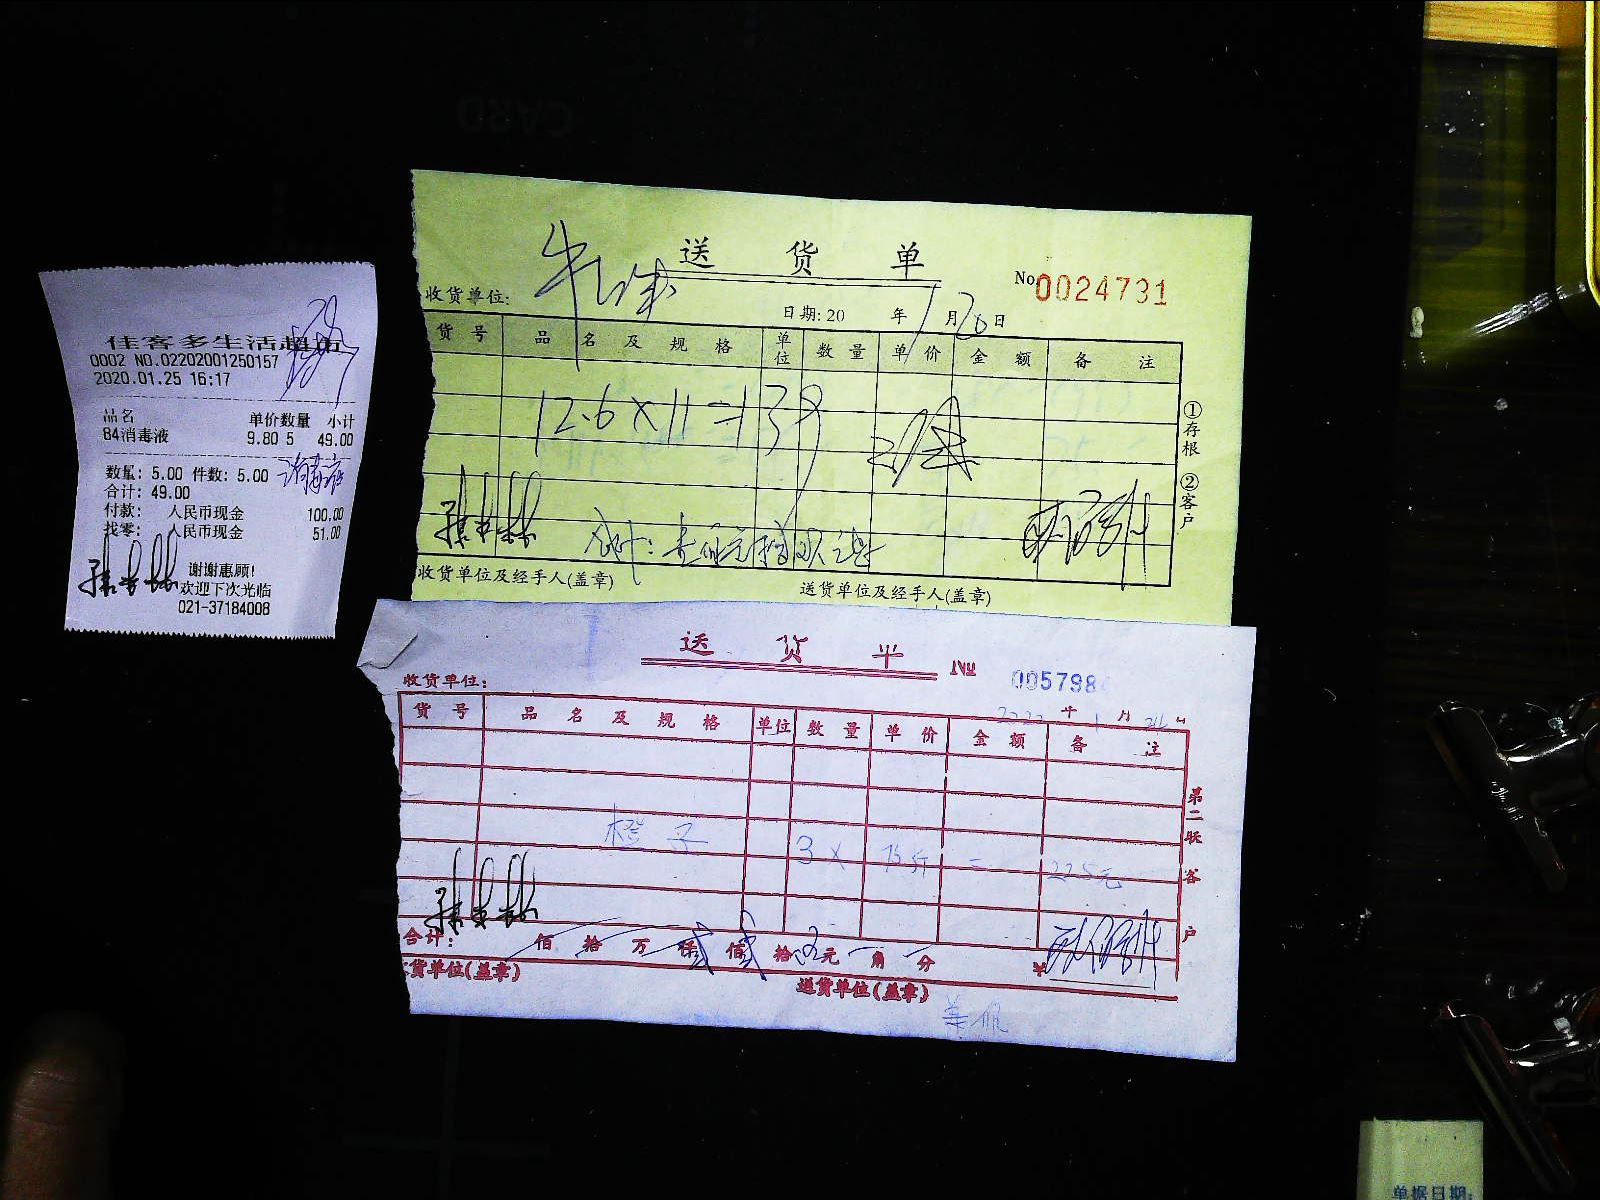 佳客多生活超市
0002 NO.02202001250157
2020.01.25 16:17
品名 单价数量 小计
84消毒液 9.80 5 49.00
数量: 5.00 件数: 5.00
合计: 49.00
付款: 人民币现金 100.00
找零: 人民币现金 51.00
谢谢惠顾!
欢迎下次光临
021-37184008
送货单
No 0024731
收货单位:
日期: 20 年 1 月 20 日
货号 品名及规格 单位 数量 单价 金额 备注
12.6×11=139
①存根 ②客户
收货单位及经手人(盖章) 送货单位及经手人(盖章)
送货单
№ 005798
收货单位:
年 1 月
货号 品名及规格 单位 数量 单价 金额 备注
橙子 3 × 75斤 = 225元
第二联客户
合计: 佰 拾 万 仟 佰 拾 元 角 分 ¥
货单位(盖章) 送货单位(盖章)
CARD
单据日期: